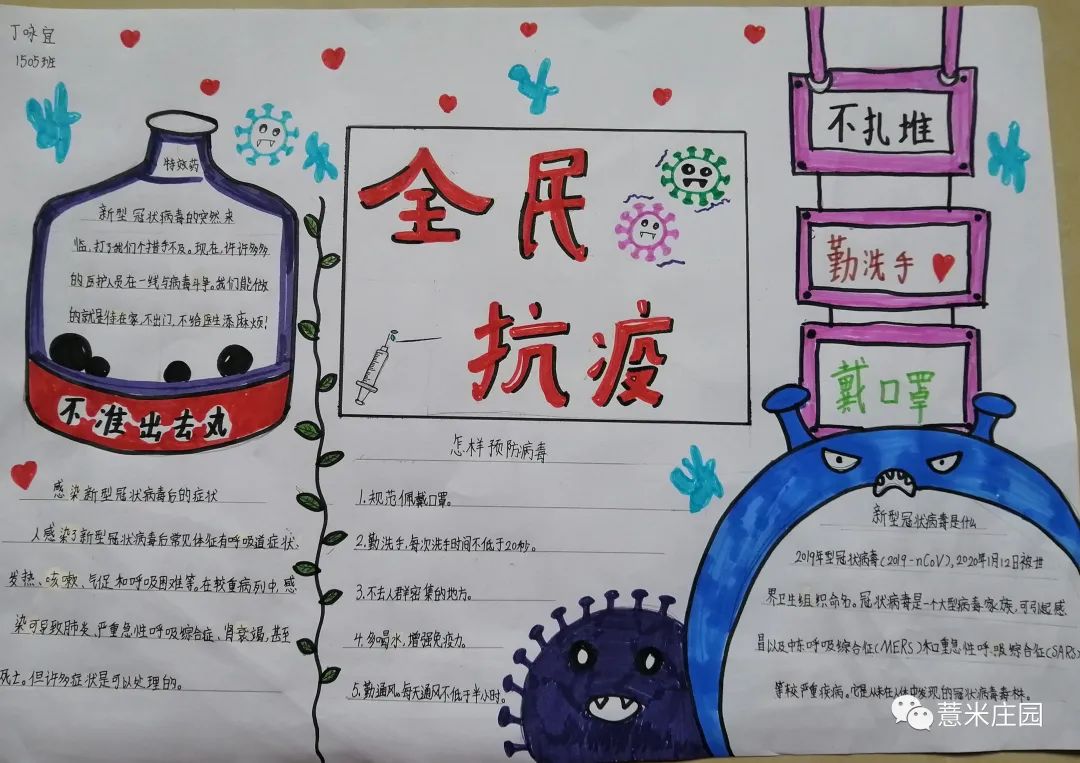 丁咏宜
1505班
特效药
新型冠状病毒的突然来
临,打了我们个措手不及。现在,许许多多
的医护人员在一线与病毒斗争。我们能做
的就是待在家,不出门,不给医生添麻烦!
不准出去丸
感染新型冠状病毒后的症状
人感染了新型冠状病毒后常见体征有呼吸道症状、
发热、咳嗽、气促和呼吸困难等。在较重病例中,感
染可导致肺炎、严重急性呼吸综合症、肾衰竭,甚至
死亡。但许多症状是可以处理的。
全民
抗疫
怎样预防病毒
1.规范佩戴口罩。
2.勤洗手,每次洗手时间不低于20秒。
3.不去人群密集的地方。
4.多喝水,增强免疫力。
5.勤通风。每天通风不低于半小时。
不扎堆
勤洗手
戴口罩
新型冠状病毒是什么
2019年型冠状病毒(2019-nCoV),2020年1月12日被世
界卫生组织命名。冠状病毒是一个大型病毒家族,可引起感
冒以及中东呼吸综合征(MERS)和重急性呼吸综合征(SARS)
等较严重疾病。它是从未在人体中发现的冠状病毒毒株。
薏米庄园